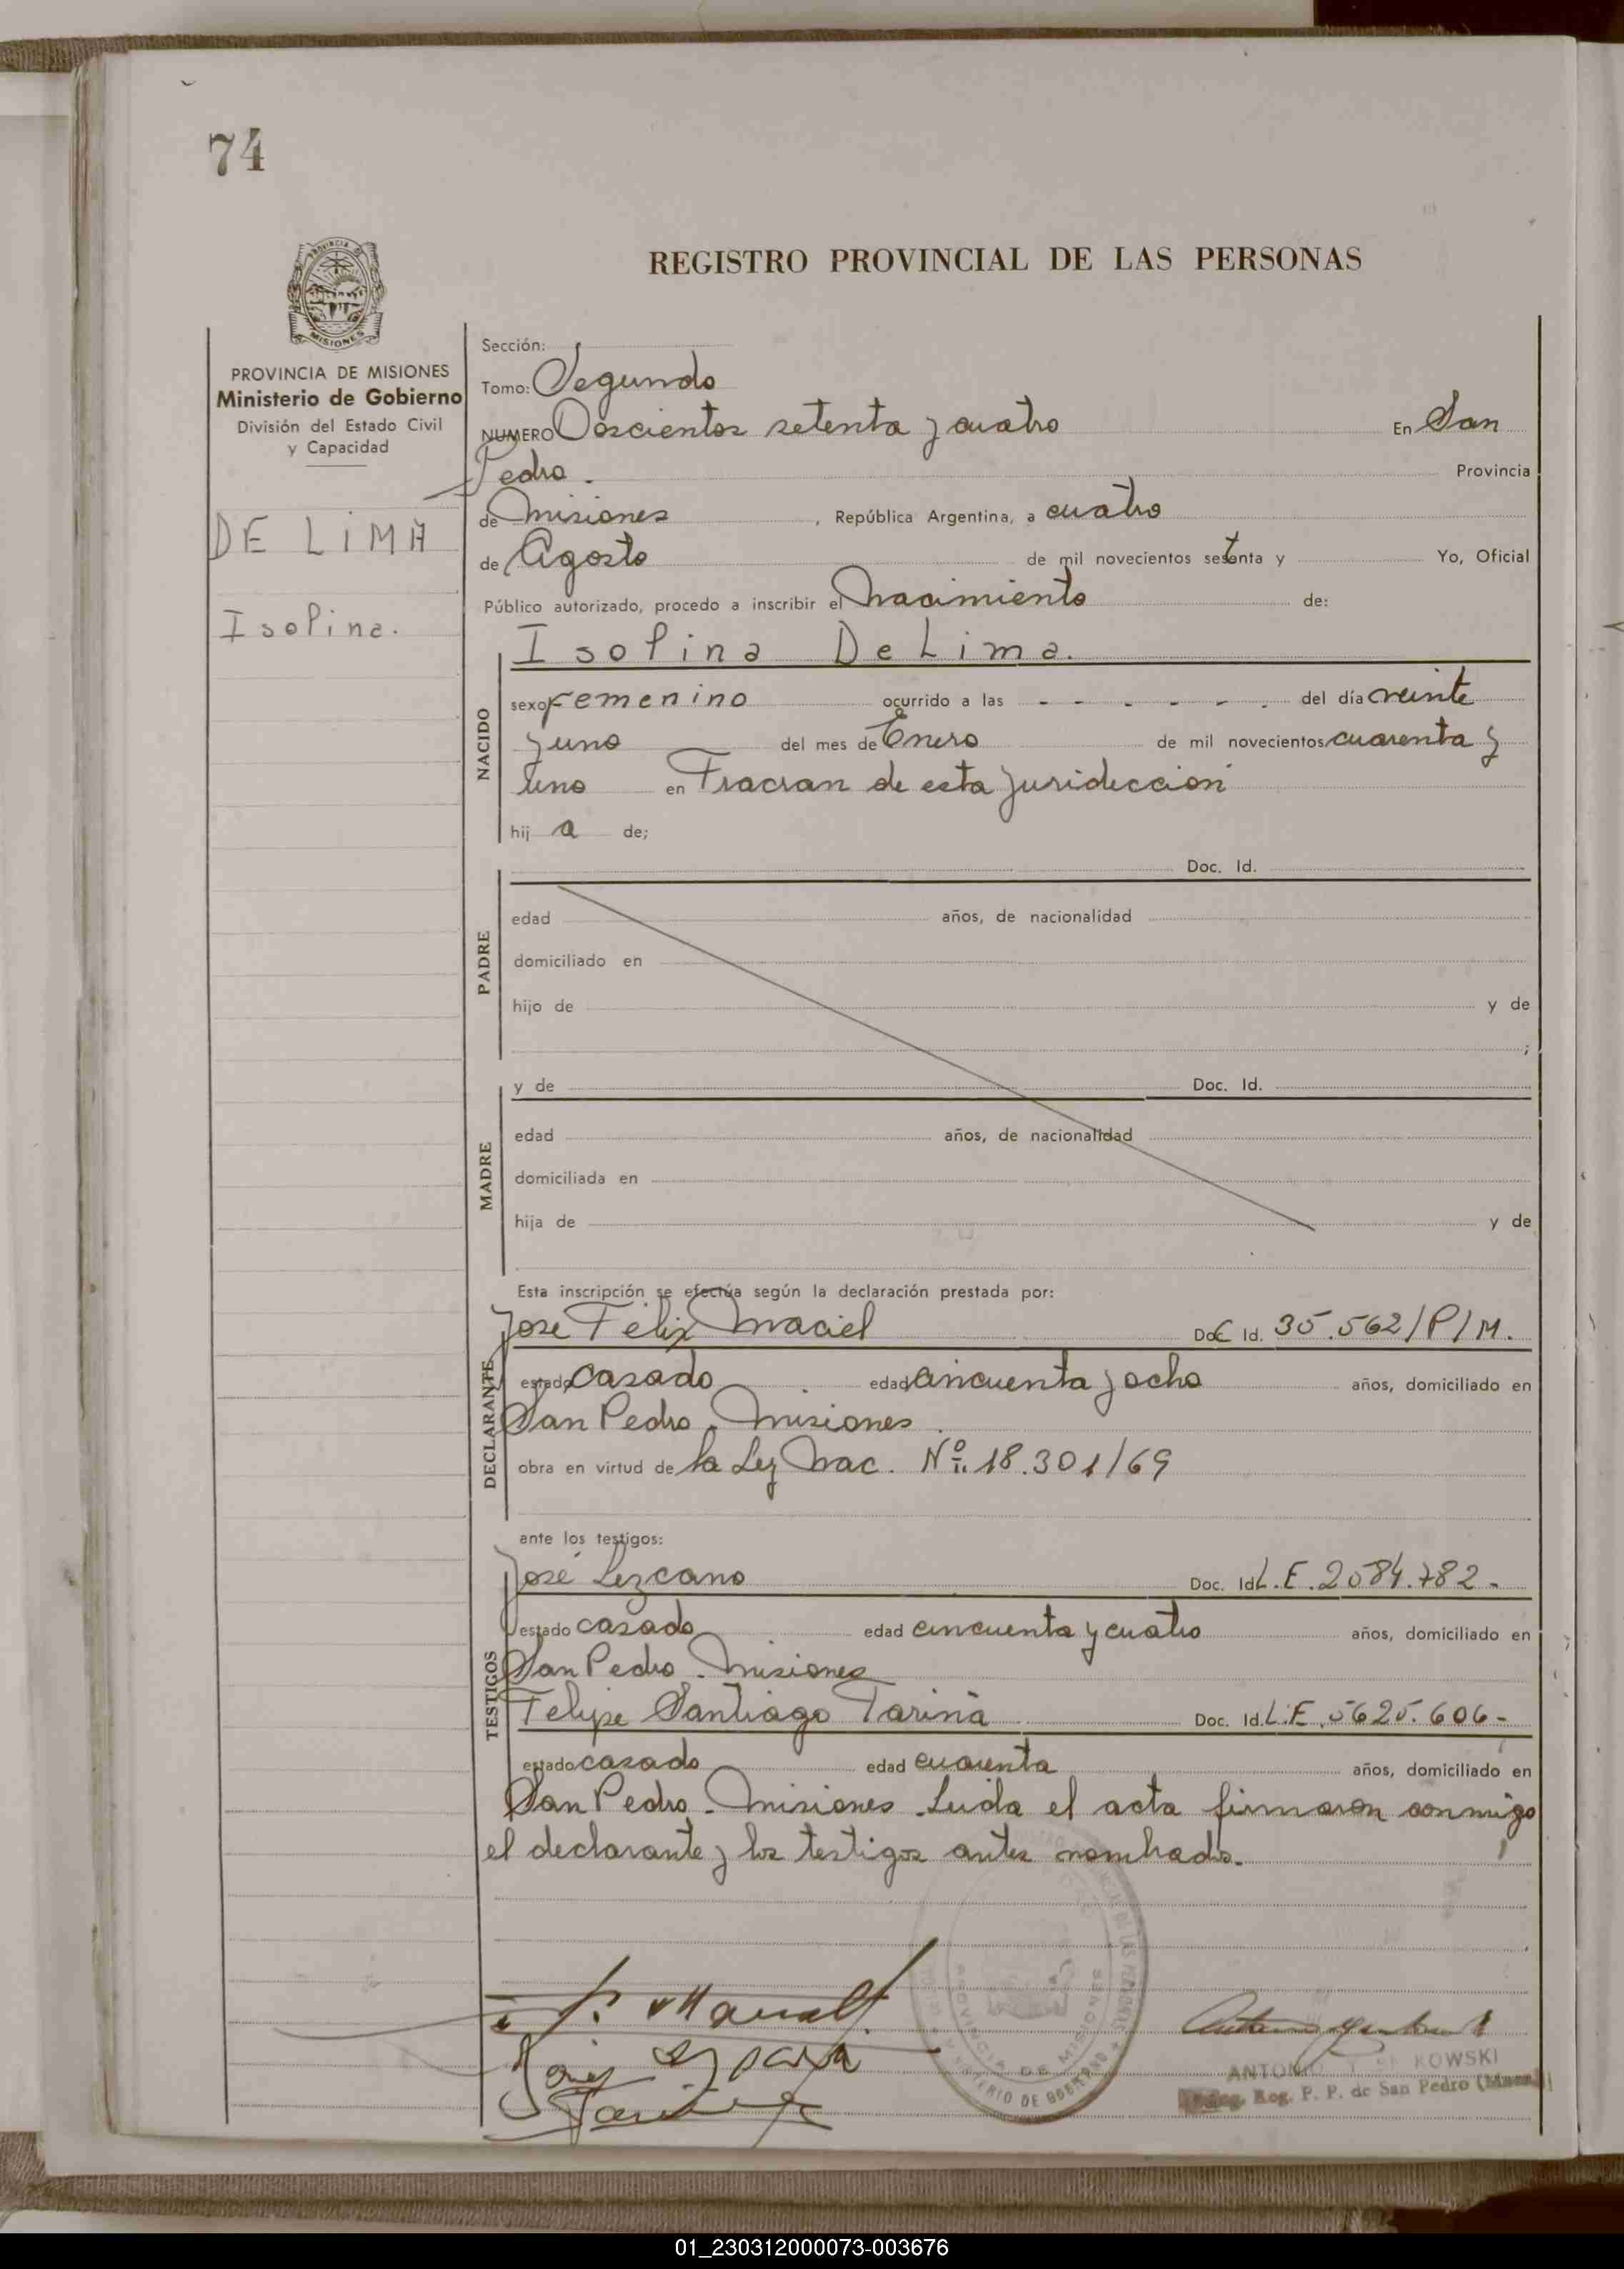 74
REGISTRO PROVINCIAL DE LAS PERSONAS
PROVINCIA
MISIONES
PROVINCIA DE MISIONES
Ministerio de Gobierno
División del Estado Civil
y Capacidad
DE LIMA
Isolina.
Sección:
Tomo: Segundo
NUMERO Doscientos setenta y cuatro En San
Pedro. Provincia
de Misiones, República Argentina, a cuatro
de Agosto de mil novecientos setenta y Yo, Oficial
Público autorizado, procedo a inscribir el Nacimiento de:
Isolina De Lima.
NACIDO
sexo Femenino ocurrido a las - - - - - - del día veinte
y uno del mes de Enero de mil novecientos cuarenta y
uno en Fracran de esta Jurideccion
hij a de;
PADRE
Doc. Id.
edad años, de nacionalidad
domiciliado en
hijo de y de
;
MADRE
y de Doc. Id.
edad años, de nacionalidad
domiciliada en
hija de y de
Esta inscripción se efectúa según la declaración prestada por:
DECLARANTE
Jose Felix Maciel Doc Id. 35.562/P/M.
estado casado edad cincuenta y ocho años, domiciliado en
San Pedro. Misiones.
obra en virtud de la Ley Nac. Nº 18.301/69
ante los testigos:
TESTIGOS
José Lezcano Doc. Id L.E. 2084.782-
estado casado edad cincuenta y cuatro años, domiciliado en
San Pedro. Misiones
Felipe Santiago Tariña Doc. Id. L.E. 5625.606-
estado casado edad cuarenta años, domiciliado en
San Pedro. Misiones. Leida el acta firmaron conmigo
el declarante y los testigos antes nombrado.
PROVINCIA DE MISIONES
MINISTERIO DE GOBIERNO
ANTONIO KOWSKI
Reg. P. P. de San Pedro
01_230312000073-003676